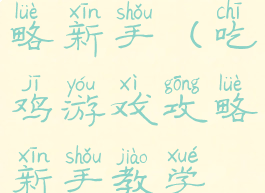 lüè xīn shǒu chī
略新手（吃
jī yóu xì gōng lüè
鸡游戏攻略
xīn shǒu jiào xué
新手教学